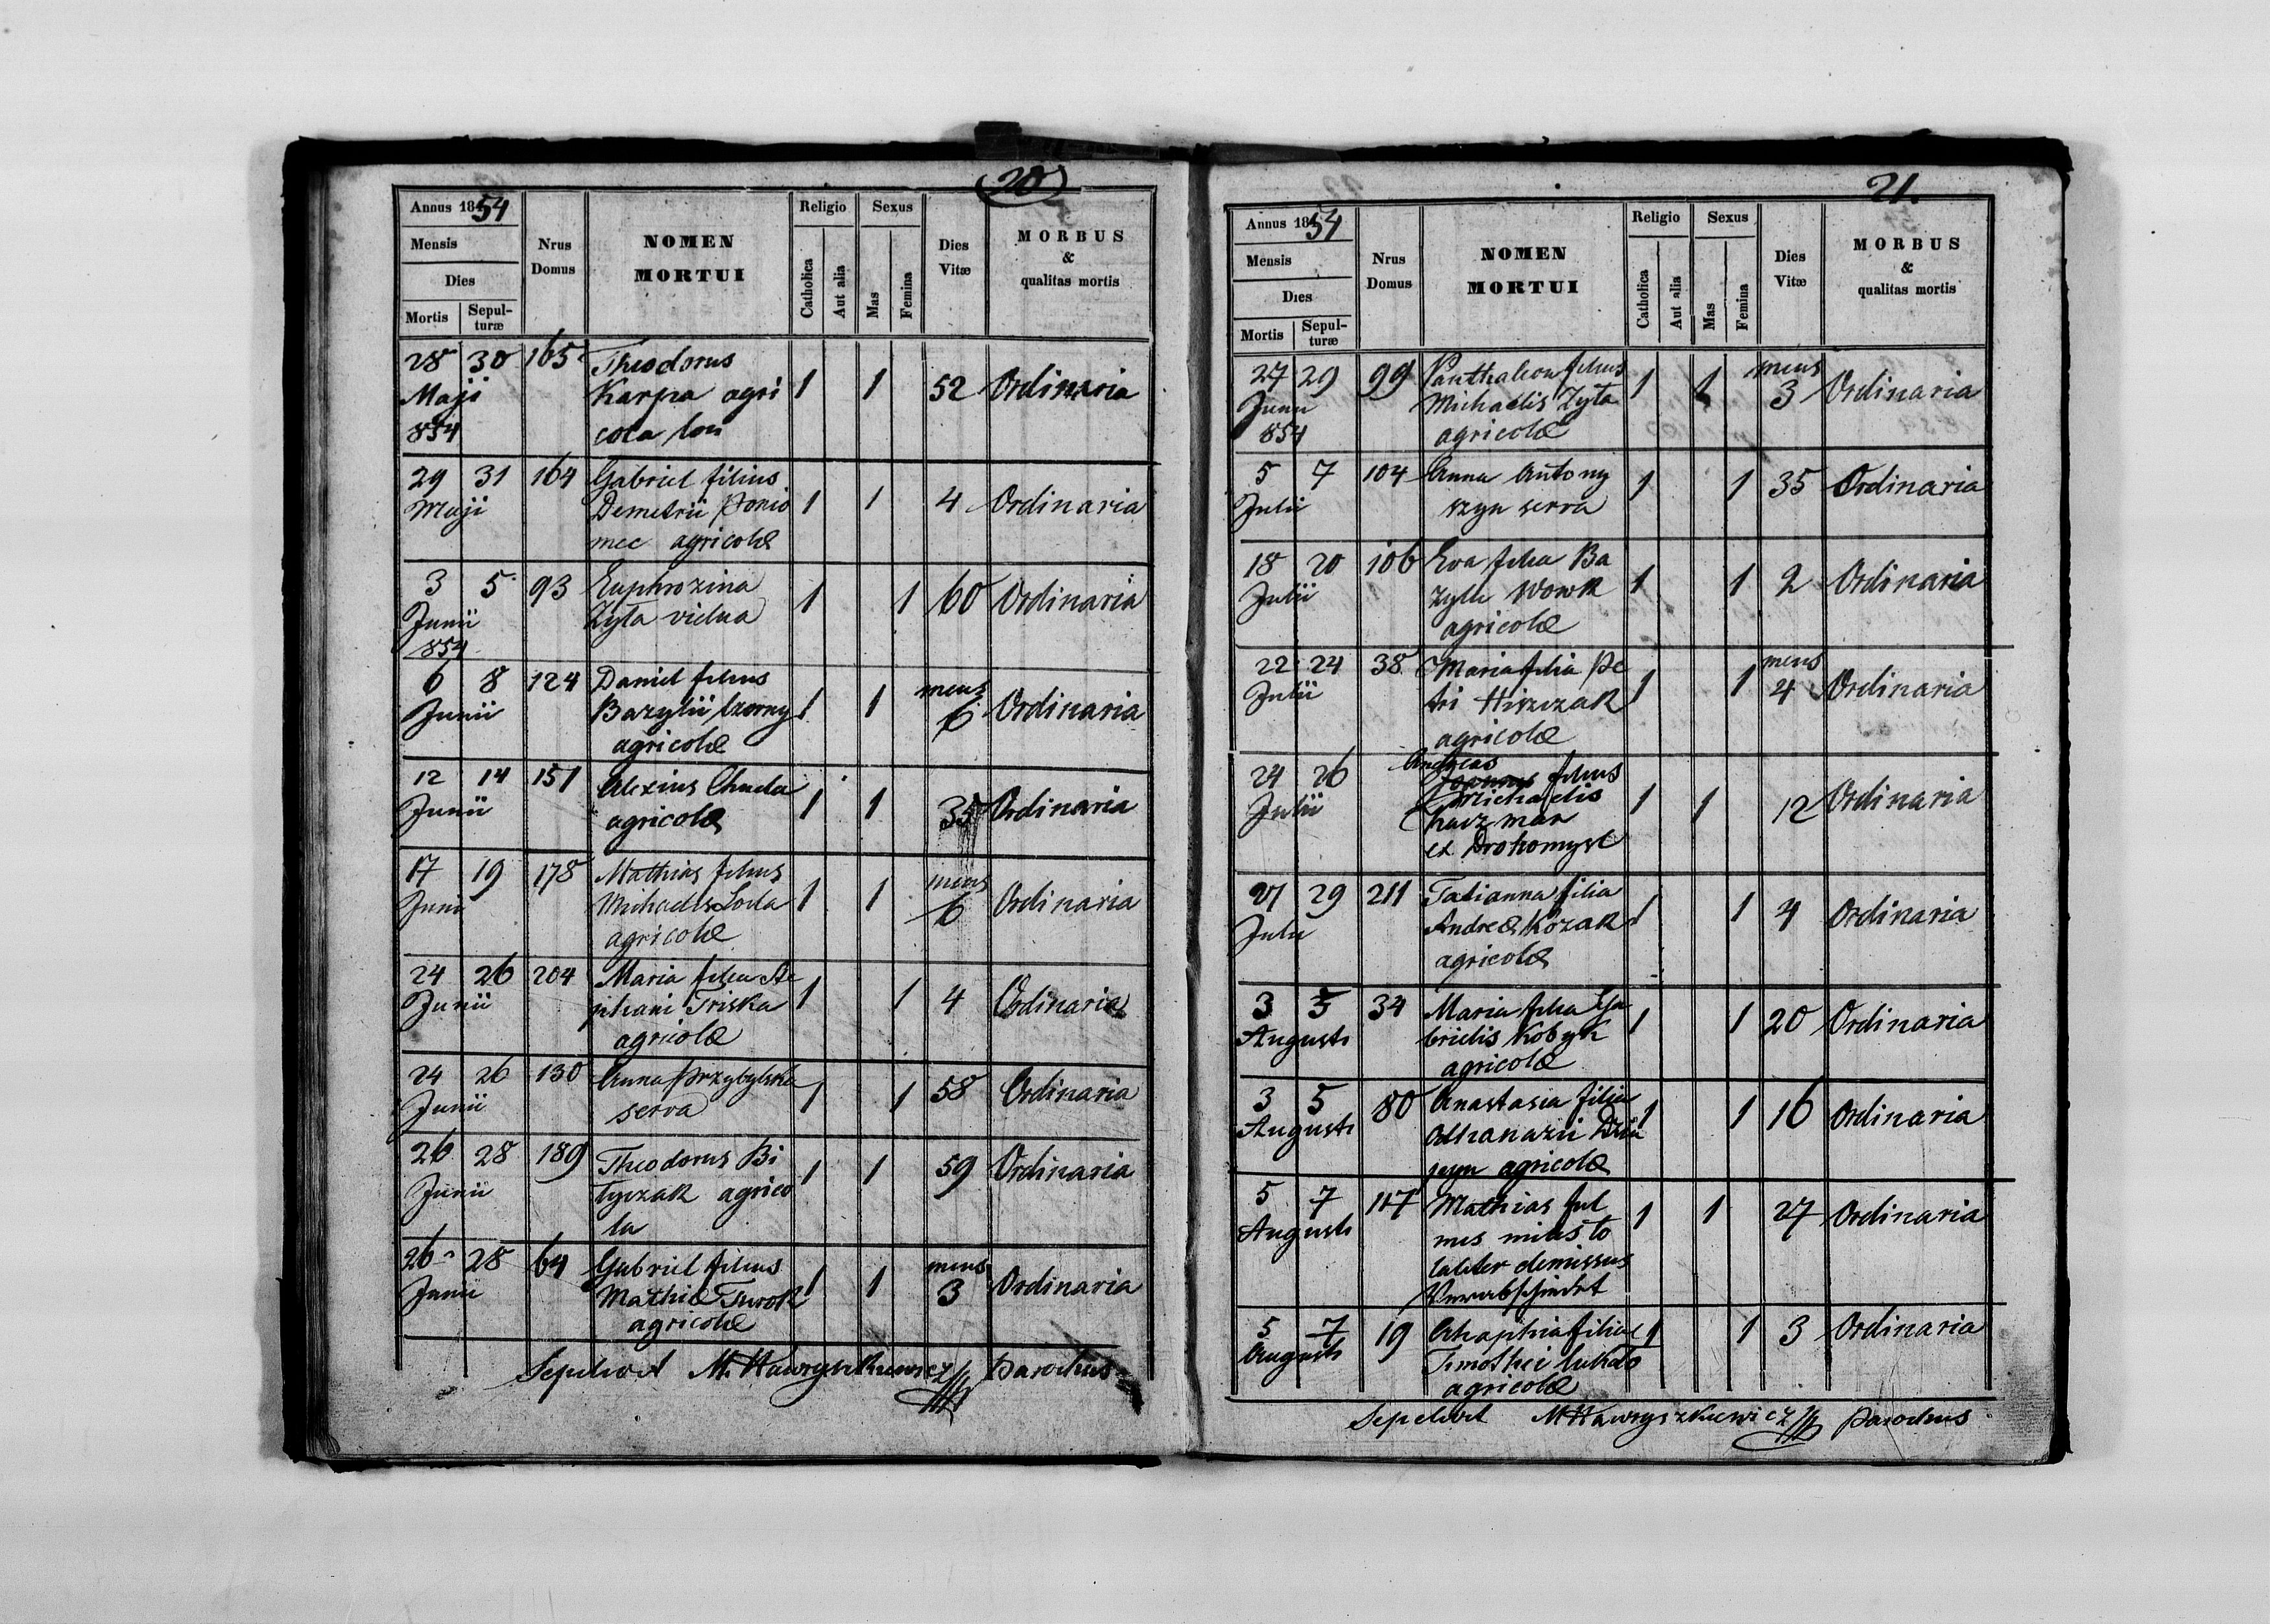 20
Annus 1854
Mensis
Dies
Mortis Sepul-turæ
Nrus Domus
NOMEN MORTUI
Religio
Catholica Aut alia
Sexus
Mas Femina
Dies Vitæ
MORBUS & qualitas mortis
28 30 165 Theodorus
Maji Karpa agri 1 1 52 Ordinaria
854 cola
29 31 164 Gabriel filius
Maji Demetrii Ponio 1 1 4 Ordinaria
mec agricolæ
3 5 93 Euphrozina
Junii Zyta vidua 1 1 60 Ordinaria
854
6 8 124 Daniel filius
Junii Bazylii Czorny 1 1 mens 6 Ordinaria
agricolæ
12 14 151 Alexius Chuda
Junii agricola 1 1 35 Ordinaria
17 19 178 Mathias filius
Junii Michaelis 1 1 mens 6 Ordinaria
agricolæ
24 26 204 Maria filia Ste
Junii phani Triska 1 1 4 Ordinaria
agricolæ
24 26 130 Anna Przybylska
Junii serva 1 1 58 Ordinaria
26 28 189 Theodorus Bi
Junii tyczak agrico 1 1 59 Ordinaria
la
26 28 64 Gabriel filius
Junii Mathiæ Turok 1 1 mens 3 Ordinaria
agricolæ
Sepelivit M. Hawryszkiewicz Parochus
21.
Annus 1854
Mensis
Dies
Mortis Sepul-turæ
Nrus Domus
NOMEN MORTUI
Religio
Catholica Aut alia
Sexus
Mas Femina
Dies Vitæ
MORBUS & qualitas mortis
27 29 99 Panthaleon filius
Junii Michaelis Zyta 1 1 mens 3 Ordinaria
854 agricolæ
5 7 104 Anna Antony
Julii szyn serva 1 1 35 Ordinaria
18 20 106 Eva filia Ba
Julii zylii Wowk 1 1 2 Ordinaria
agricolæ
22 24 38 Maria filia Pe
Julii tri Hiszczak 1 1 mens 4 Ordinaria
agricolæ
Andreas
24 26 Joannes filius
Julii Michaelis 1 1 12 Ordinaria
Chaczmar
ex Drohomysl
27 29 211 Tatianna filia
Julii Andreæ Kozak 1 1 4 Ordinaria
agricolæ
3 5 34 Maria filia Ga
Augusti brielis Kobyk 1 1 20 Ordinaria
agricolæ
3 5 80 Anastasia filia
Augusti Athanazii 1 1 16 Ordinaria
agricolæ
5 7 117 Mathias
Augusti miles 1 1 27 Ordinaria
demissus
Verabschiedet
5 7 19 Ahaphia filia 1 1 3 Ordinaria
Augusti Timothei
agricolæ
Sepelivit M Hawryszkiewicz Parochus